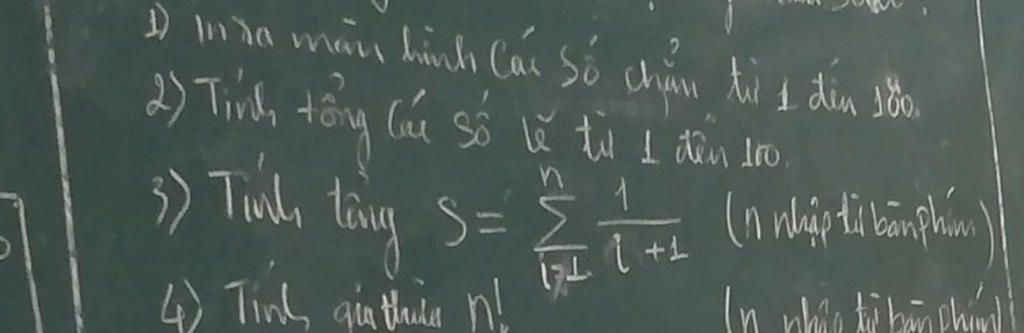 1) In ra màn hình các số chẵn từ 1 đến 100.
2) Tính tổng các số lẽ từ 1 đến 100.
3) Tính tổng S = \sum_{i=1}^{n} \frac{1}{i+1} (n nhập từ bàn phím)
4) Tính giai thừa n! (n nhập từ bàn phím)